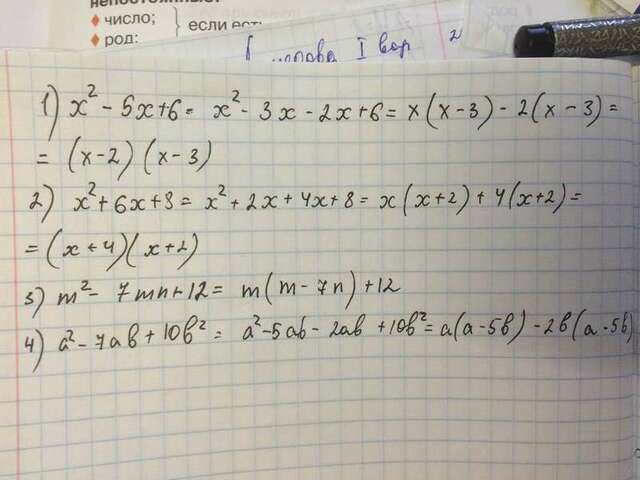 число;
род:
если ест
I вар 2
1) x² - 5x+6 = x² - 3x - 2x+6 = x(x-3) - 2(x-3) =
= (x-2) (x-3)
2) x²+6x+8 = x²+2x+4x+8 = x(x+2)+4(x+2) =
= (x+4)(x+2)
3) m² - 7mn+12 = m(m-7n)+12
4) a² - 7ab+10b² = a²-5ab-2ab+10b² = a(a-5b)-2b(a-5b)